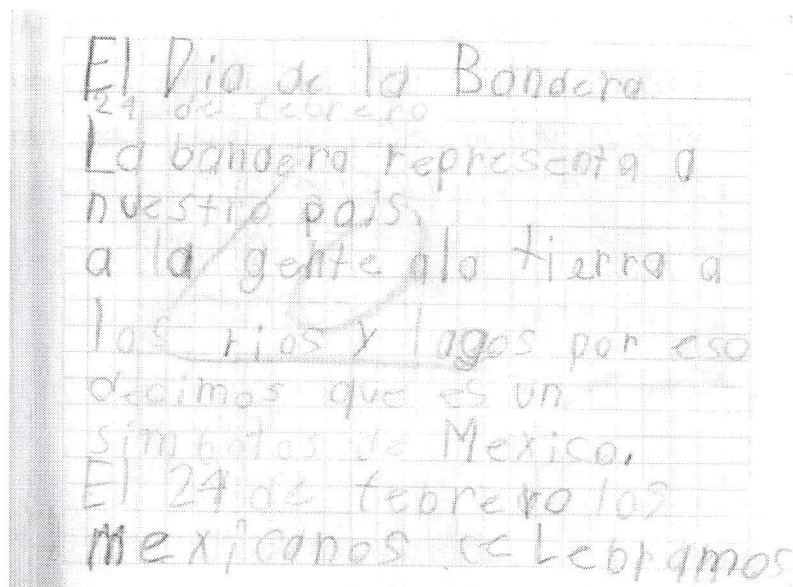 El Dia de la Bandera
24 de febrero
La bandera representa a
nuestro pais,
a la gente ala tierra a
los rios y lagos por eso
decimos que es un
simbolos de Mexico.
El 24 de febrero los
mexicanos ceLebramos